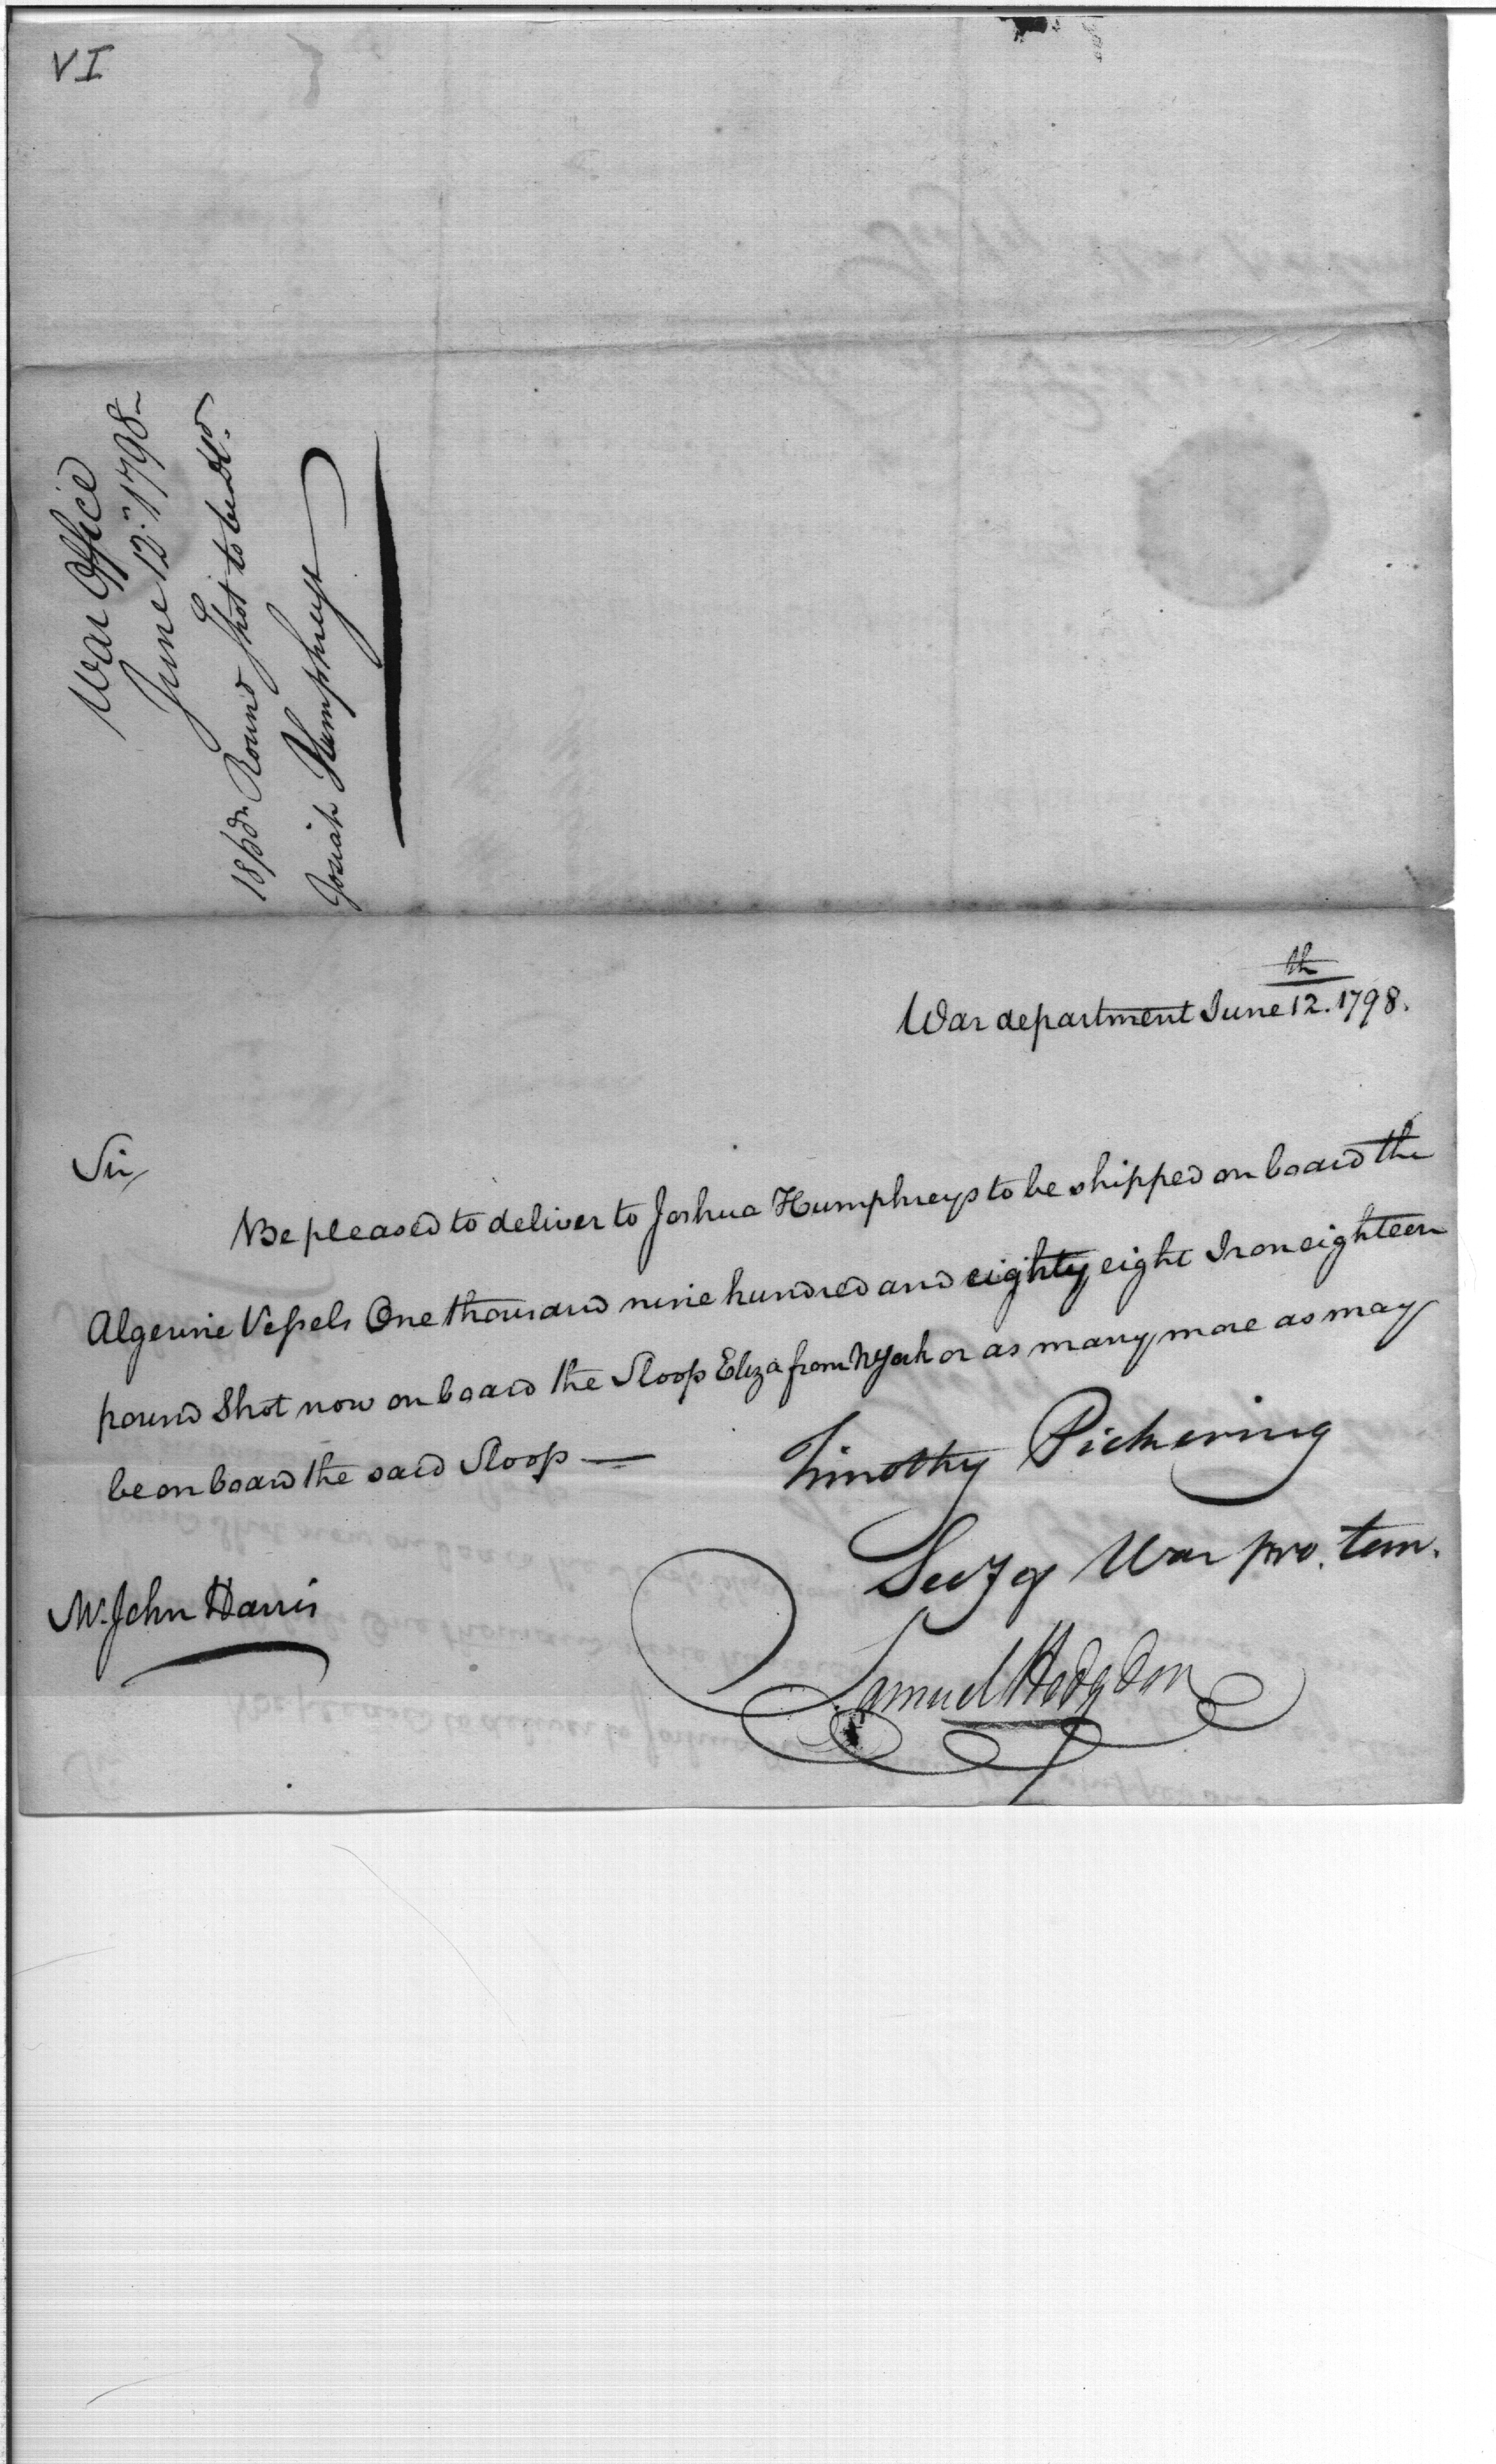 VI
War Office
June 12th 1798
18 pdr Round Shot to be dd
Josiah Humphreys
th
War department June 12. 1798.
Sir,
Be pleased to deliver to Joshua Humphreys to be shipped on board the
Algerine Vessels One thousand nine hundred and eighty eight Iron eighteen
pound Shot now on board the Sloop Eliza from NYork or as many more as may
be on board the said Sloop —
Timothy Pickering
Secy of War pro. tem.
Mr. John Harris
Samuel Hodgdon